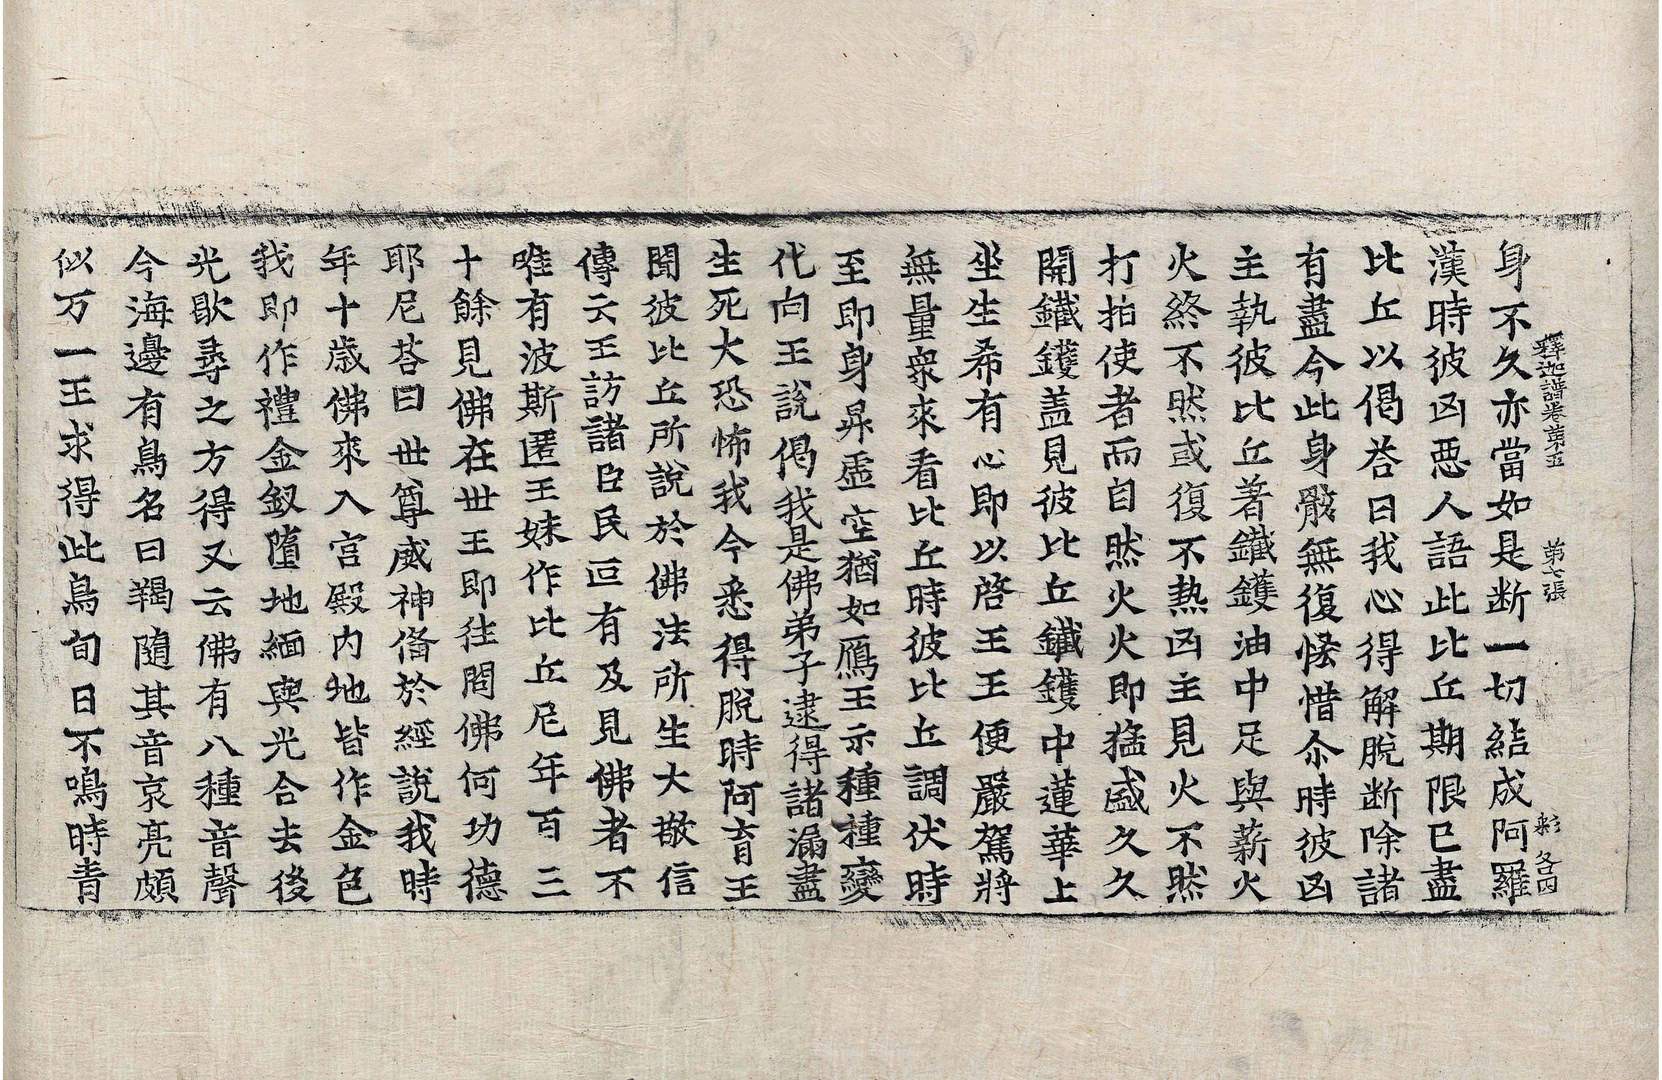 釋迦譜卷第五　第七張　彩　各四
身不久亦當如是断一切結成阿羅
漢時彼凶惡人語此比丘期限已盡
比丘以偈荅曰我心得解脫断除諸
有盡今此身骸無復恡惜尒時彼凶
主執彼比丘著鐵鑊油中足與薪火
火終不燃或復不熱凶主見火不燃
打拍使者而自燃火火即猛盛久久
開鐵鑊盖見彼比丘鐵鑊中蓮華上
坐生希有心即以啓王王便嚴駕將
無量衆來看比丘時彼比丘調伏時
至即身昇虛空猶如鴈王示種種變
化向王說偈我是佛弟子逮得諸漏盡
生死大恐怖我今悉得脫時阿育王
聞彼比丘所說於佛法所生大敬信
傳云王訪諸臣民叵有及見佛者不
唯有波斯匿王妹作比丘尼年百三
十餘見佛在世王即往問佛何功德
耶尼荅曰世尊威神俻於經說我時
年十歲佛來入宮殿內地皆作金色
我即作禮金釵墮地緬與光合去後
光歇尋之方得又云佛有八種音聲
今海邊有鳥名曰羯隨其音哀亮頗
似万一王求得此鳥旬日不鳴時青